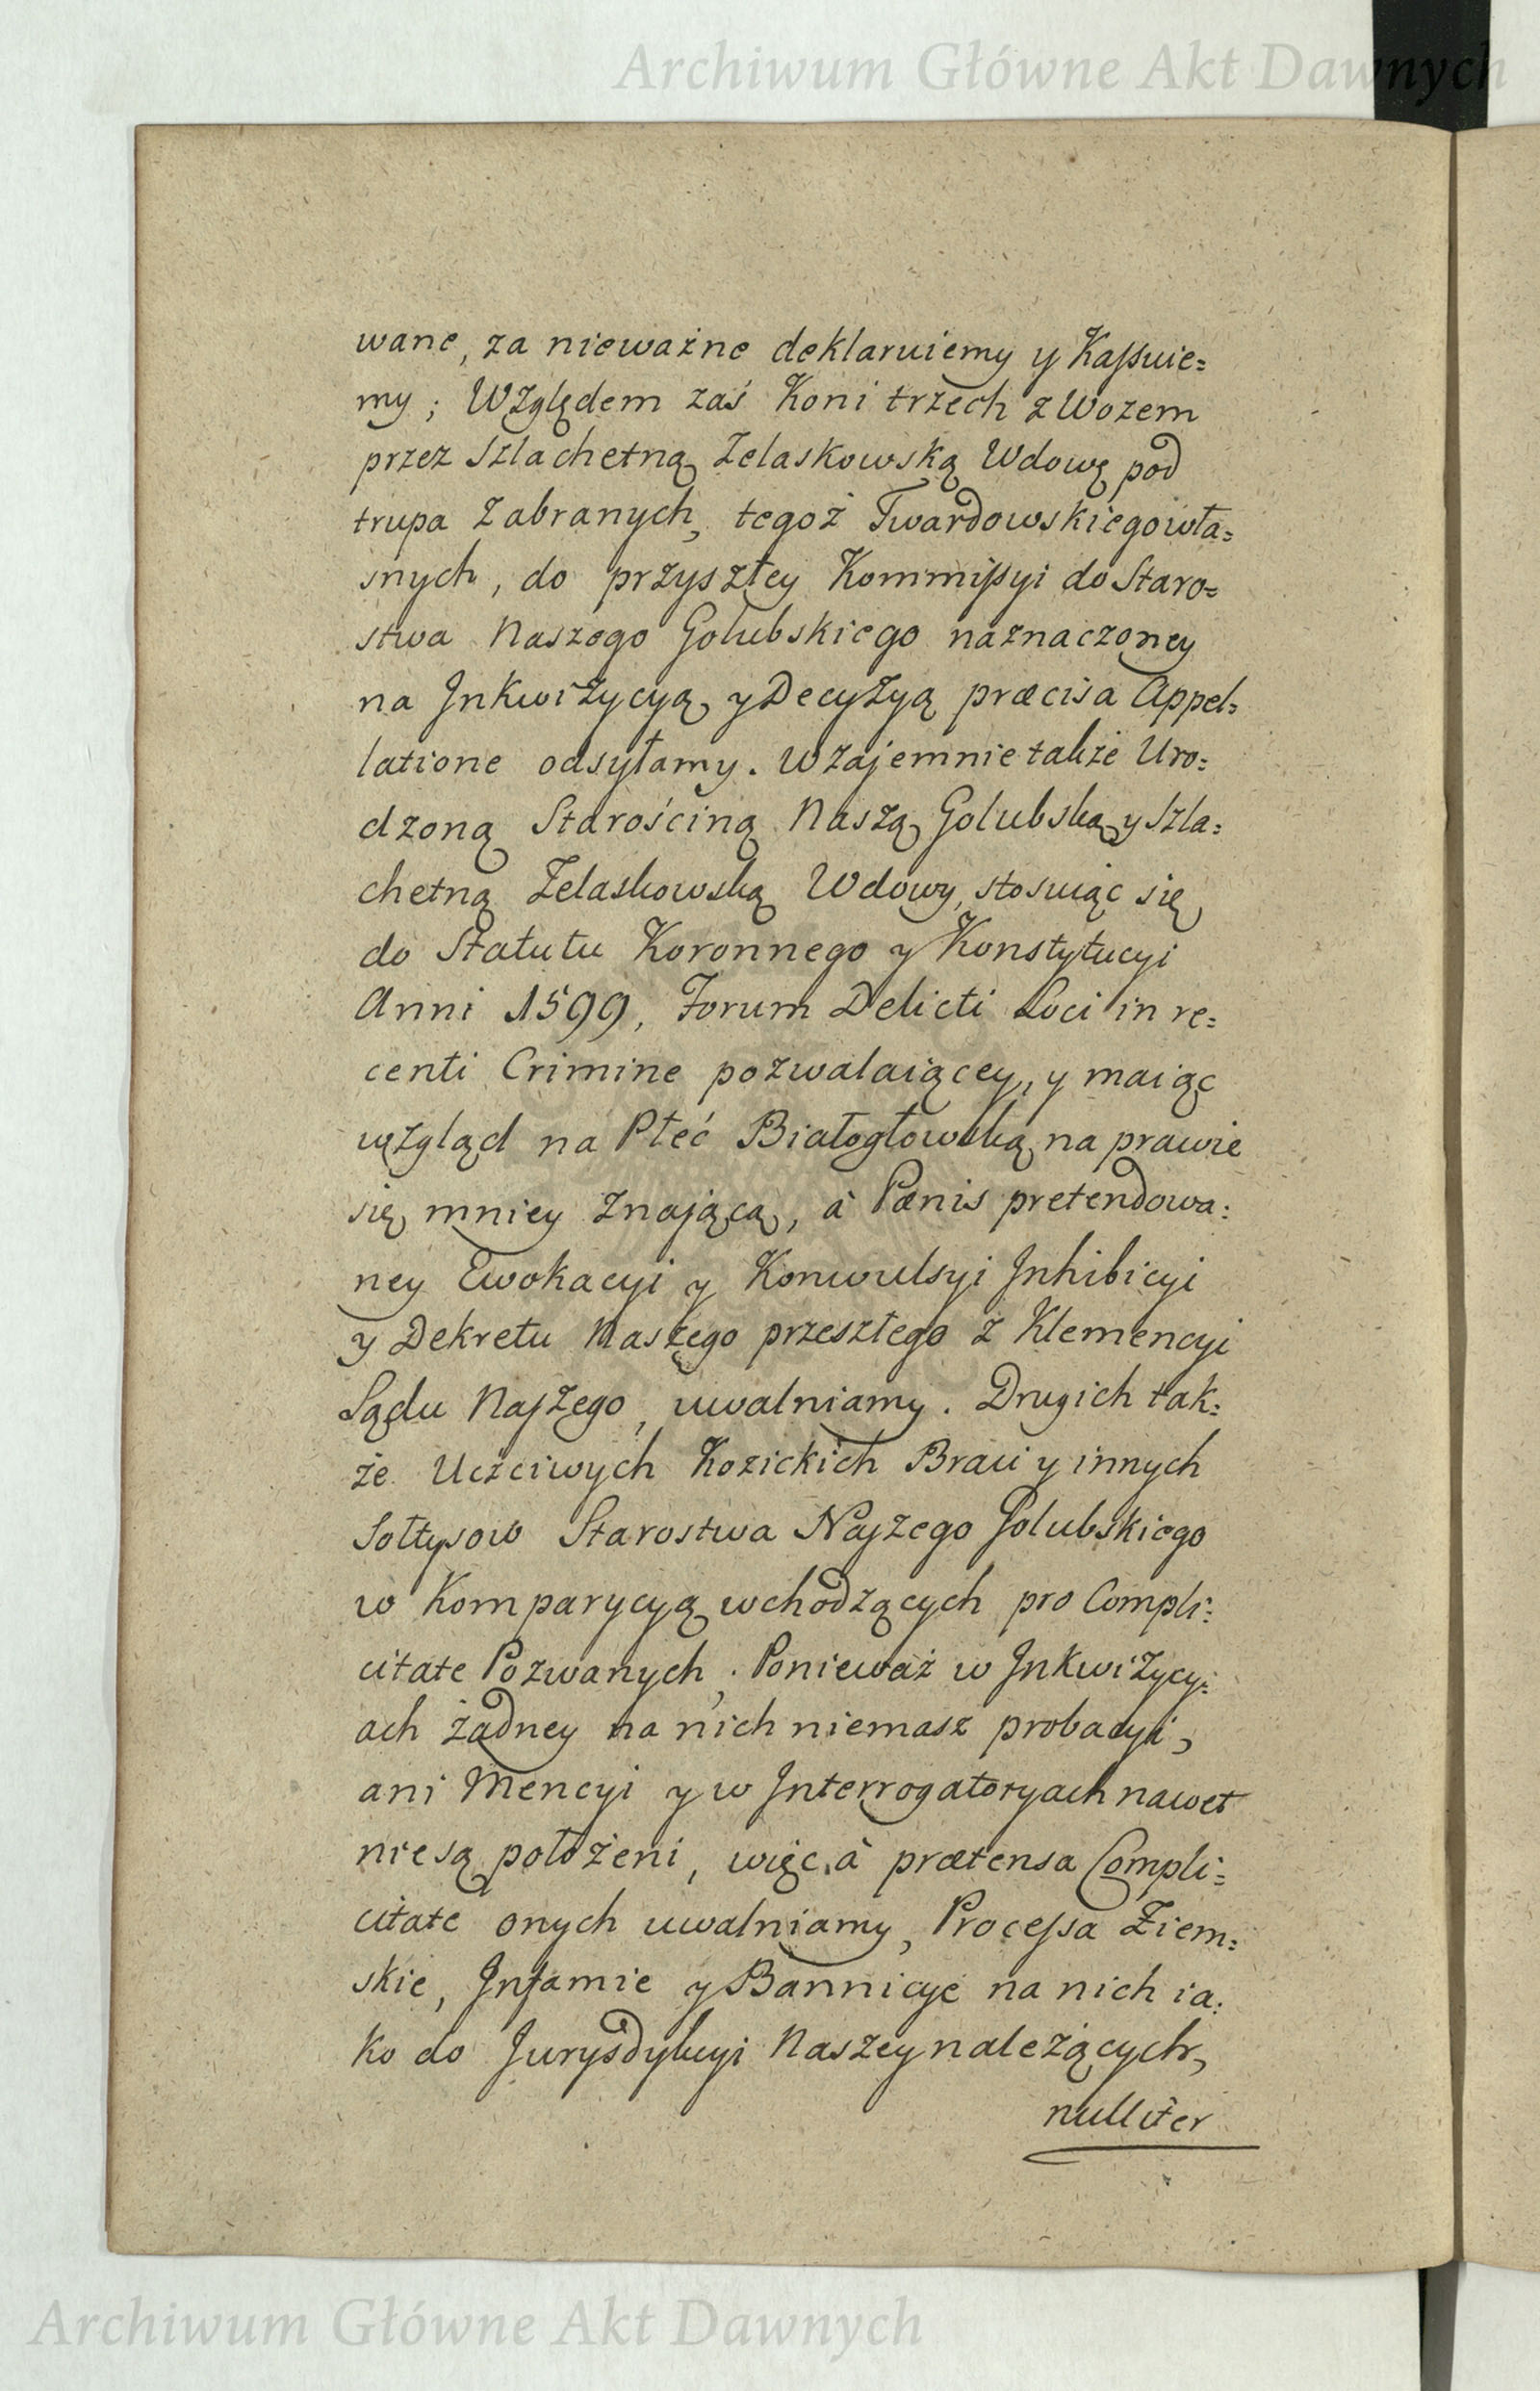 Archiwum Główne Akt Dawnych
wane, za nieważne deklaruiemy y Kassuie=
my; Względem zaś Koni trzech z Wozem
przez Szlachetną Zelaskowską Wdowę pod
trupa zabranych, tegoż Twardowskiego wła=
snych, do przyszłey Kommissyi do Staro=
stwa Naszego Golubskiego naznaczoney
na Jnkwizycyą y Decyzyą præcisa Appel=
latione odsyłamy. Wzajemnie także Uro=
dzoną Starościną Naszą Golubską y Szla=
chetną Zelaskowską Wdowy, stosuiąc się
do Statutu Koronnego y Konstytucyi
Anni 1599, Forum Delicti Loci in re=
centi Crimine pozwalaiącey, y maiąc
wzgląd na Płeć Białogłowską na prawie
się mniey znającą, à Pœnis pretendowa:
ney Ewokacyi y Konwulsyi Jnhibicyi
y Dekretu Naszego przeszłego z Klemencyi
Sądu Naszego, uwalniamy. Drugich tak:
że Uczciwych Kozickich Braci y innych
Sołtysow Starostwa Naszego Golubskiego
w Komparycyą wchodzących pro Compli:
citate Pozwanych; Ponieważ w Jnkwizycy:
ach żadney na nich niemasz probacyi,
ani Mencyi y w Jnterrogatoryach nawet
niesą położeni, więc à prætensa Compli=
citate onych uwalniamy, Processa Ziem=
skie, Jnfamie y Bannicye na nich ia:
ko do Jurysdykcyi Naszey należących,
nulliter
Archiwum Główne Akt Dawnych